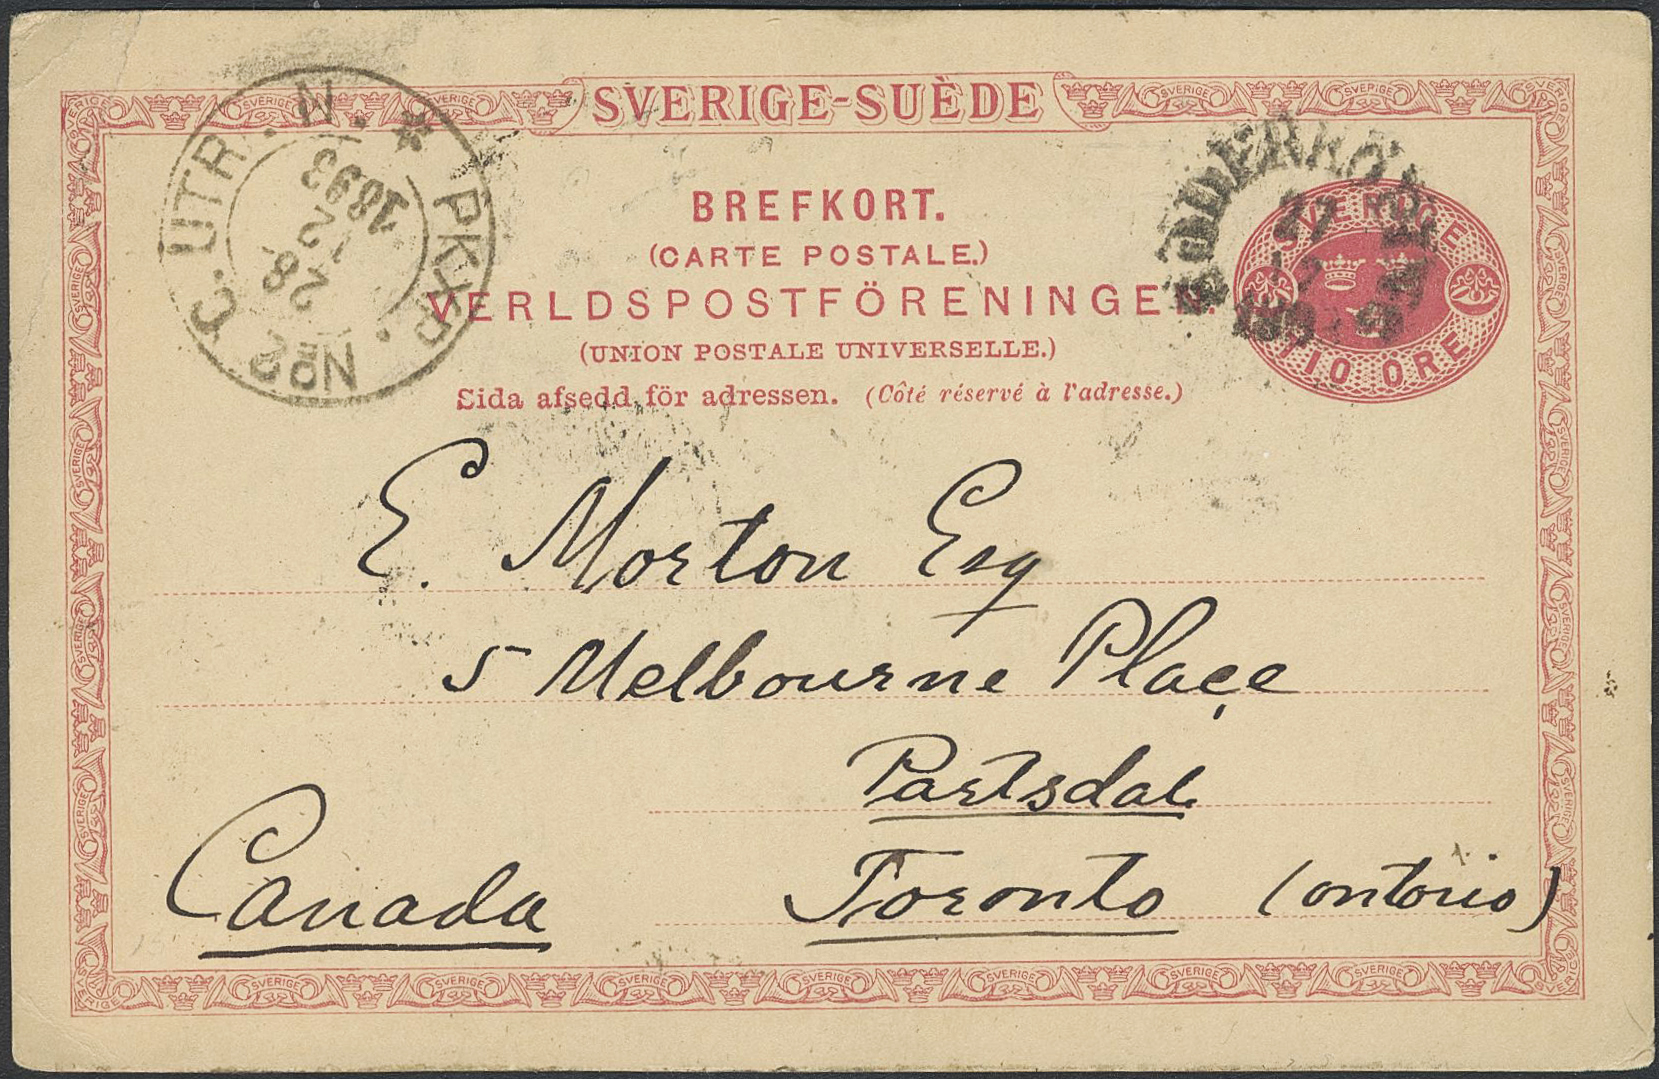 SVERIGE-SUÈDE
BREFKORT.
(CARTE POSTALE.)
VERLDSPOSTFÖRENINGEN.
(UNION POSTALE UNIVERSELLE.)
Sida afsedd för adressen. (Côté réservé à l'adresse.)
PKXP. No 2 C. UTR. N.
28 12 1893
SVERIGE
10 ÖRE
E. Morton Esq
5 Melbourne Place
Toronto (ontorio)
Canada